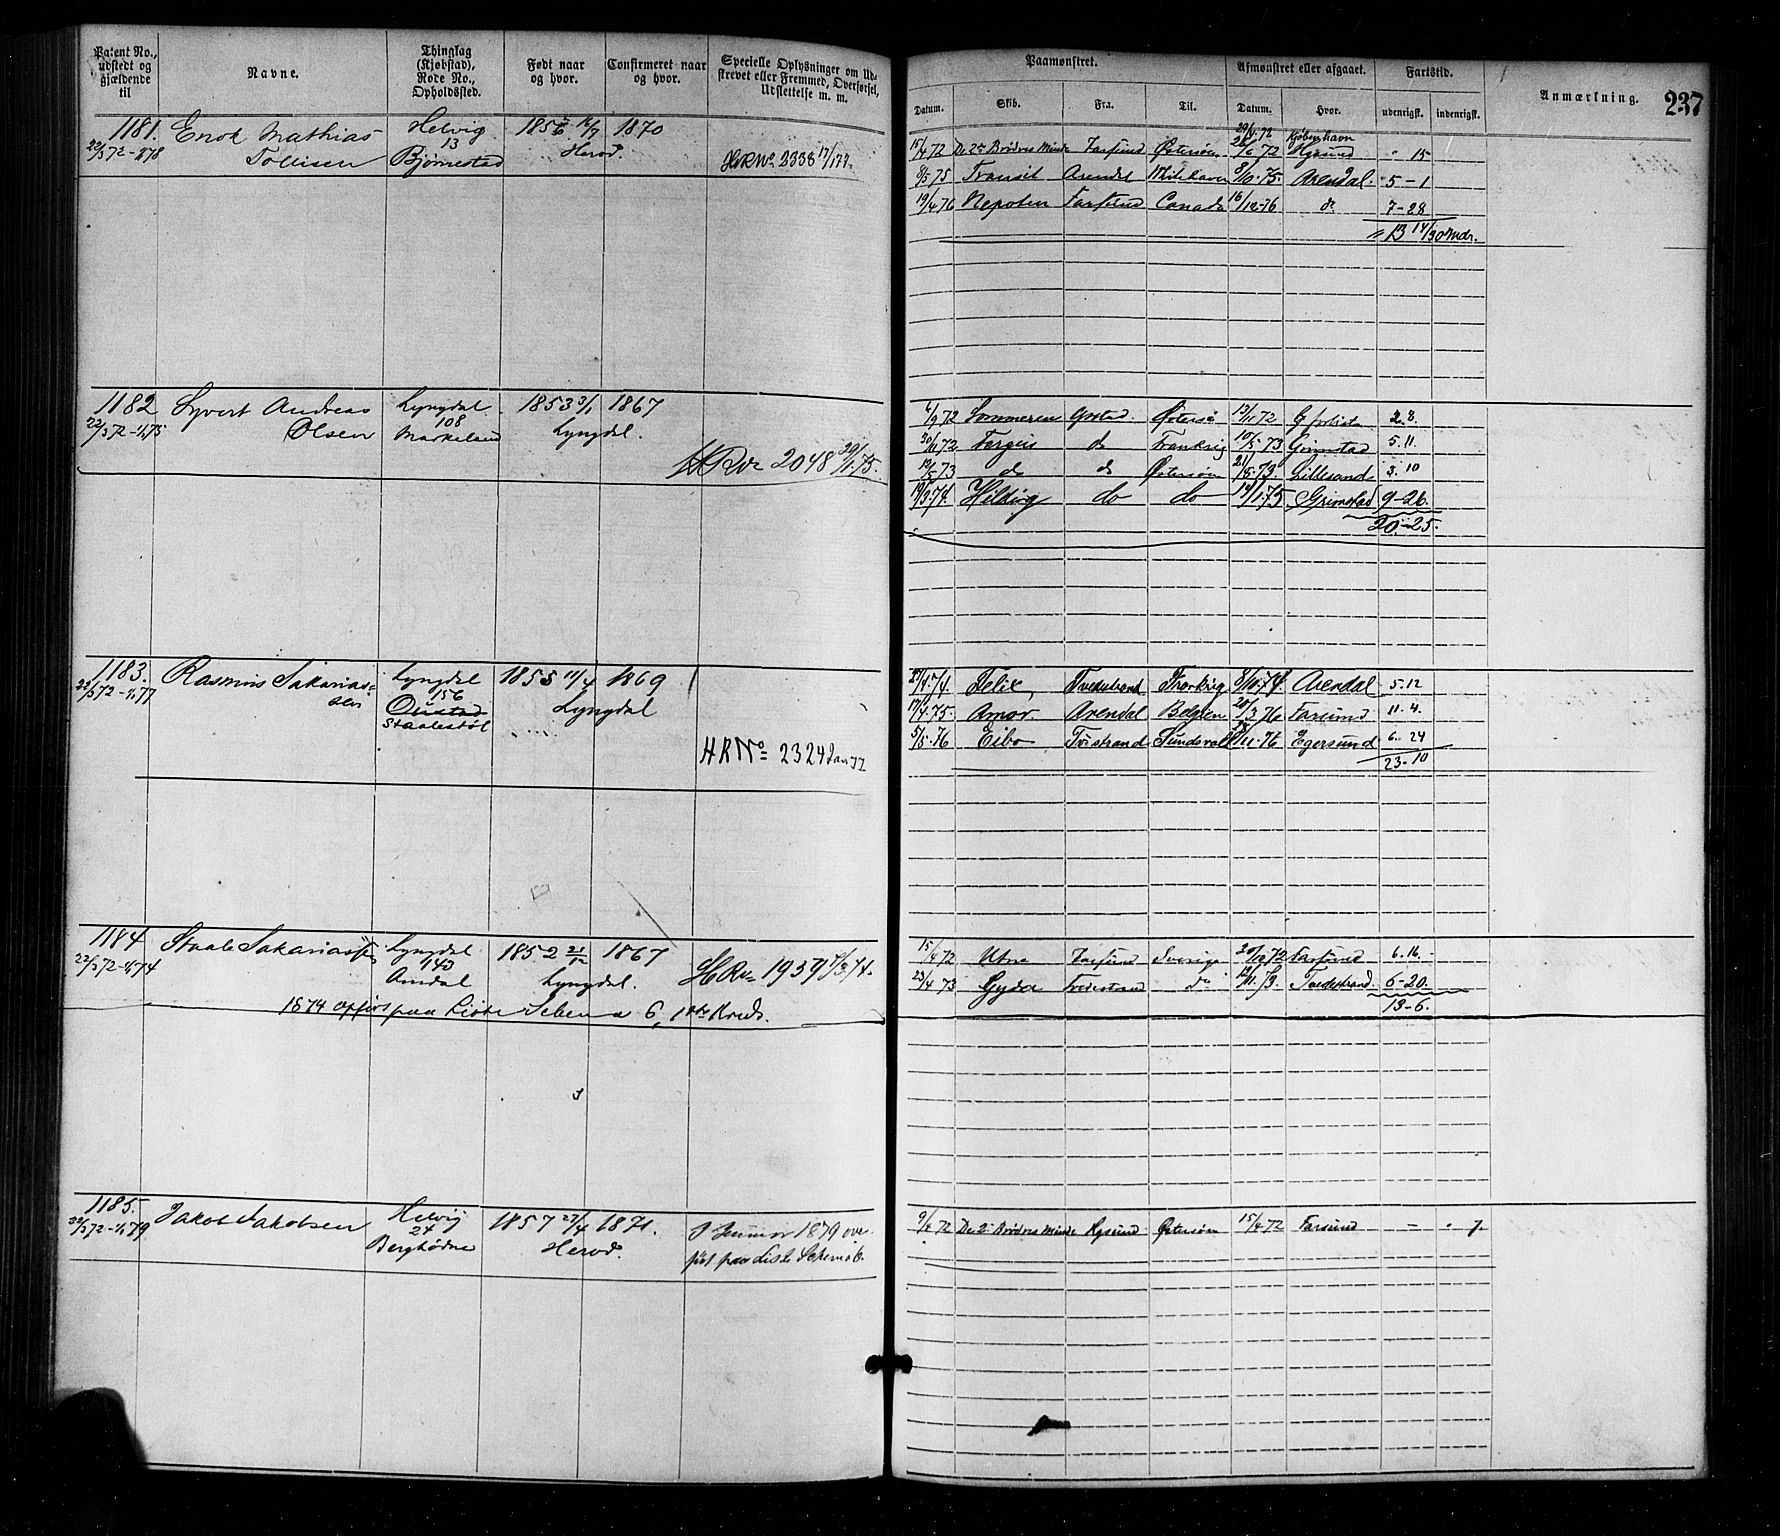 Patent No., udstedt og gjældende til
Navne.
Thinglag (Kjøbstad), Rode No., Opholdssted.
Født naar og hvor.
Confirmeret naar og hvor.
Specielle Oplysninger om Udstrevet eller Fremmed, Overførsel, Udslettelse m. m.
Paamønstret.
Afmønstret eller afgaaet.
Fartstid.
Anmærkning.
237
Datum.
Skib.
Fra.
Til.
Datum.
Hvor.
udenrigsk.
indenrigsk.
1181. Enok Mathias Helvig 1856 16/7 1870
22/3 72 - 1/1 78 Tollisen 13 Bjørnestad Herod. HRNo 2338 17/1 77.
29/5 72 Kjøbenhavn
15/4 72 De 2de Brødres Minde Farsund Østersøen 26/6 72 " 15
8/5 75 Transit Arendal 8/10 75. Arendal. 5 - 1
19/4 76 Nepoten Farsund Canada 16/12 - 76 do 7 - 28
= 13 14/30 Mdr.
1182 Syvert Andreas Lyngdal 1853 3/1 1867
22/3 72 - 1/1 75 Olsen 108 Markeland Lyngdal.
HRNo 2048 29/1 75.
6/9 72 Sommeren Østersø 13/11 72 2. 8.
30/11 72 do Frankrig 10/5 73 Grimstad 5. 11.
13/5 73 do do Østersøen 21/8 73 Lillesand 3. 10
19/3 74. Hilding do do 14/1 75 Grimstad 9 - 26.
20 - 25.
1183. Rasmus Sakarias- Lyngdal 1855 11/4 1869
22/3 72 - 1/1 77 sen 156 Staalestøl Lyngdal
HRNo 2324 Jan 77
27/4 74. Felix, Tvedestrand 8/10 74 Arendal 5. 12
17/4 75. Amor. Arendal Belgien 20/3 76 Farsund 11. 4.
5/5 76 Eibo Tvestrand Sundsvall 76 Egersund 6. 24
23. 10
1184 Staale Sakariassen Lyngdal 1852 21/12 1867
22/3 72 - 1/1 74 143 Amdal Lyngdal. HRNo 1939 74.
1874 opført paa Liste Schema 6, 1ste Kreds.
15/4 72 Utna Farsund Sverige 30/10 72 Farsund 6. 16.
23/4 73 Gyda Tvedestrand do 12/11 73. Tvedestrand. 6 - 20.
13 - 6.
1185. Jakob Jakobsen Helvig 1857 27/4 1871.
22/3 72 - 1/1 79 24 Berghødne Herod. 1879 overført paa Liste Schema 6.
9/4 72 De 2de Brødres Minde Østersøen 15/4 72 Farsund - " 7.